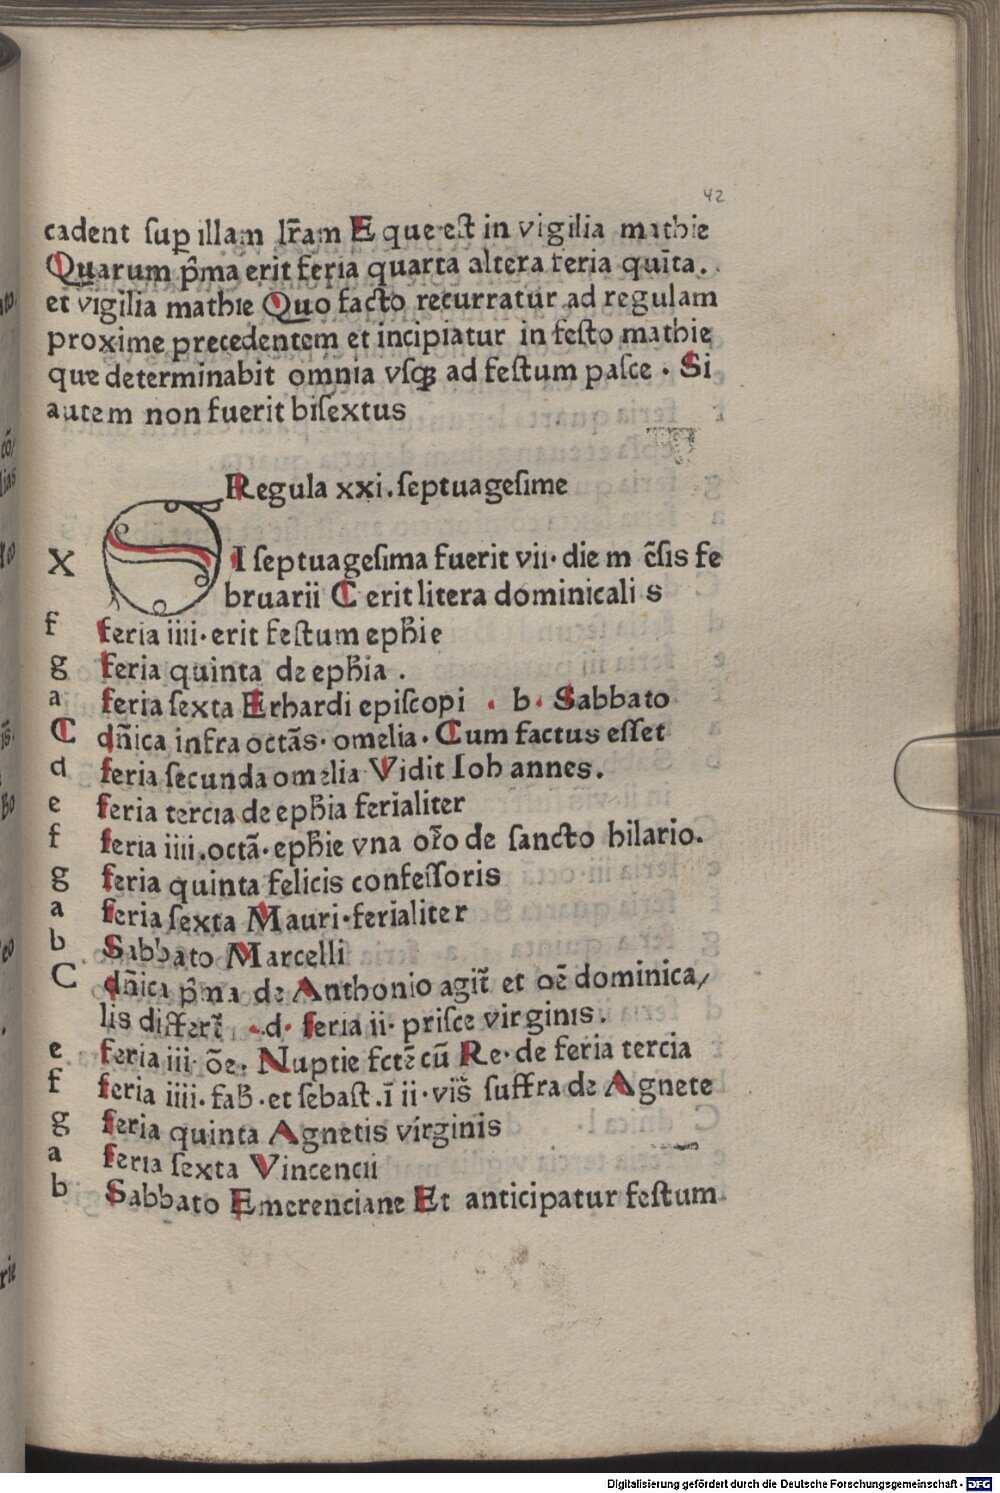 42
cadent sup̱ illam lr̄am E que est in vigilia mathie
Quarum p̄ma erit feria quarta altera feria quīta.
et vigilia mathie Quo facto recurratur ad regulam
proxime precedentem et incipiatur in festo mathie
que determinabit omnia vsqꝫ ad festum pasce . Si
autem non fuerit bisextus
Regula xxi. septuagesime
X SI septuagesima fuerit vii· die m ēsis fe
bruarii C erit litera dominicali s
f feria iiii· erit festum eph̄ie
g feria quinta de eph̄ia .
a feria sexta Erhardi episcopi . b· Sabbato
C dn̄ica infra octās· omelia· Cum factus esset
d feria secunda omelia Vidit Ioh annes.
e feria tercia de eph̄ia ferialiter
f feria iiii. octā· eph̄ie vna or̄o de sancto hilario.
g feria quinta felicis confessoris
a feria sexta Mauri· ferialiter
b Sabbato Marcelli
C dn̄ica p̄ma de Anthonio agit̄ et oē dominica/
lis differt̄ .d· feria ii· prisce virginis.
e feria iii· ōe. Nuptie fctē cū Re· de feria tercia
f feria iiii. fab̄ ·et sebast .ī ii·vis̄ suffra de Agnete
g feria quinta Agnetis virginis
a feria sexta Vincencii
b Sabbato Emerenciane Et anticipatur festum
Digitalisierung gefördert durch die Deutsche Forschungsgemeinschaft - DFG